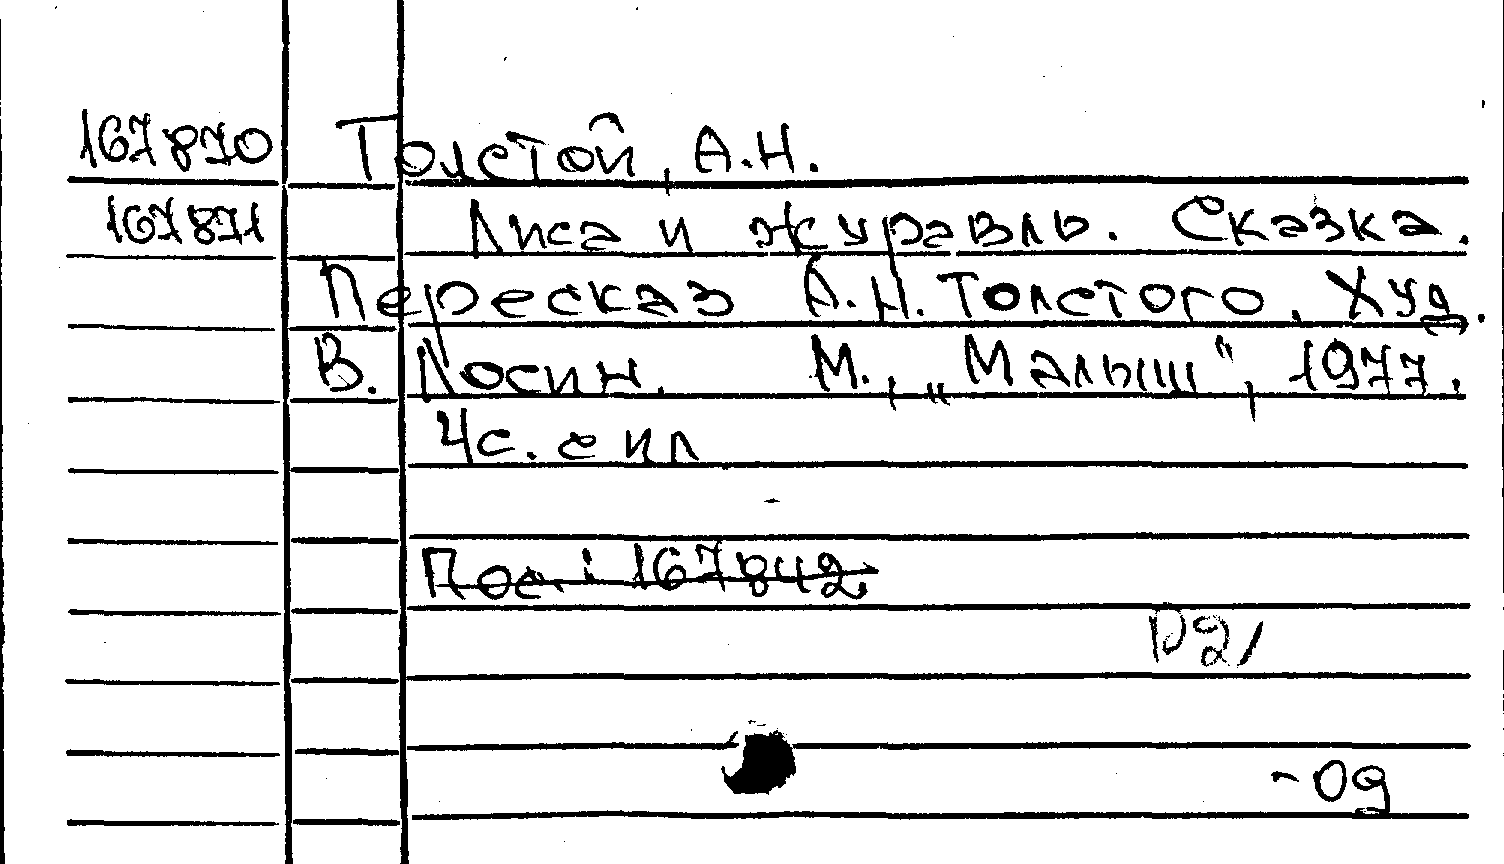 167870 Толстой, А.Н.
167871 Лиса и журавль. Сказка.
Пересказ А.Н. Толстого. Худ.
В. Лосин. М., „Малыш“, 1977.
4с. с ил
Пос.: 167842.
D2/
-од